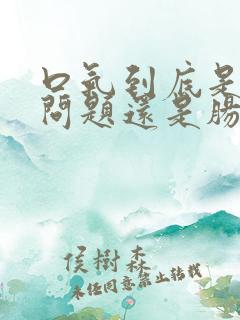 口氣到底是
問題還是腸
侯樹森
未经同意禁止转载